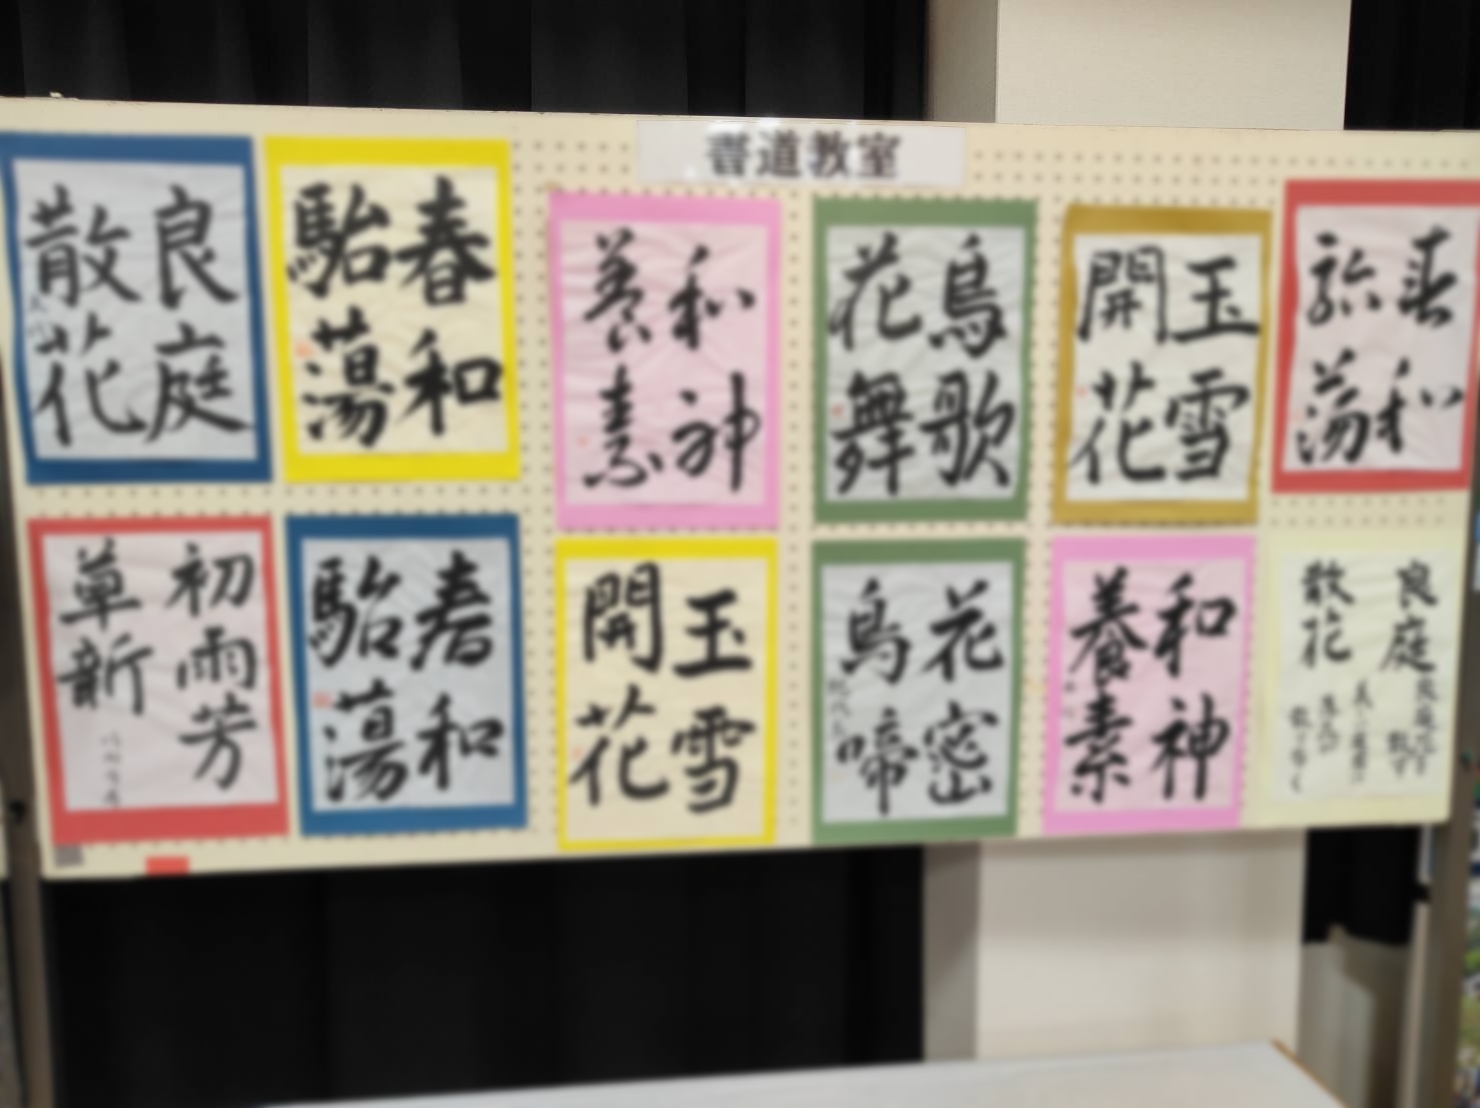 書道教室
良庭
散花
春和
駘蕩
和神
養素
鳥歌
花舞
玉雪
開花
春和
駘蕩
初雨芳
草新
春和
駘蕩
玉雪
開花
花密
鳥啼
和神
養素
良庭
散花